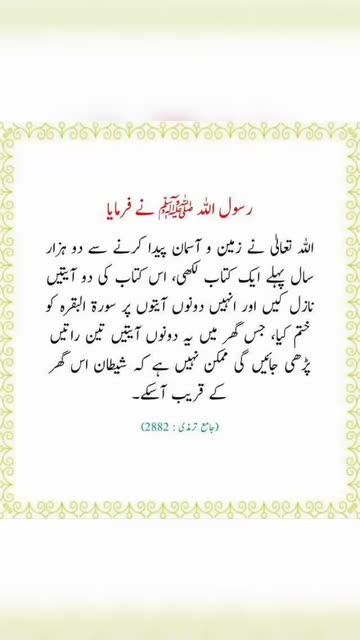 رسول اللہ ﷺ نے فرمایا
اللہ تعالٰی نے زمین و آسمان پیدا کرنے سے دو ہزار
سال پہلے ایک کتاب لکھی، اس کتاب کی دو آیتیں
نازل کیں اور انہیں دونوں آیتوں پر سورۃ البقرہ کو
ختم کیا، جس گھر میں یہ دونوں آیتیں تین راتیں
پڑھی جائیں گی ممکن نہیں ہے کہ شیطان اس گھر
کے قریب آسکے۔
(جامع ترمذی : 2882)